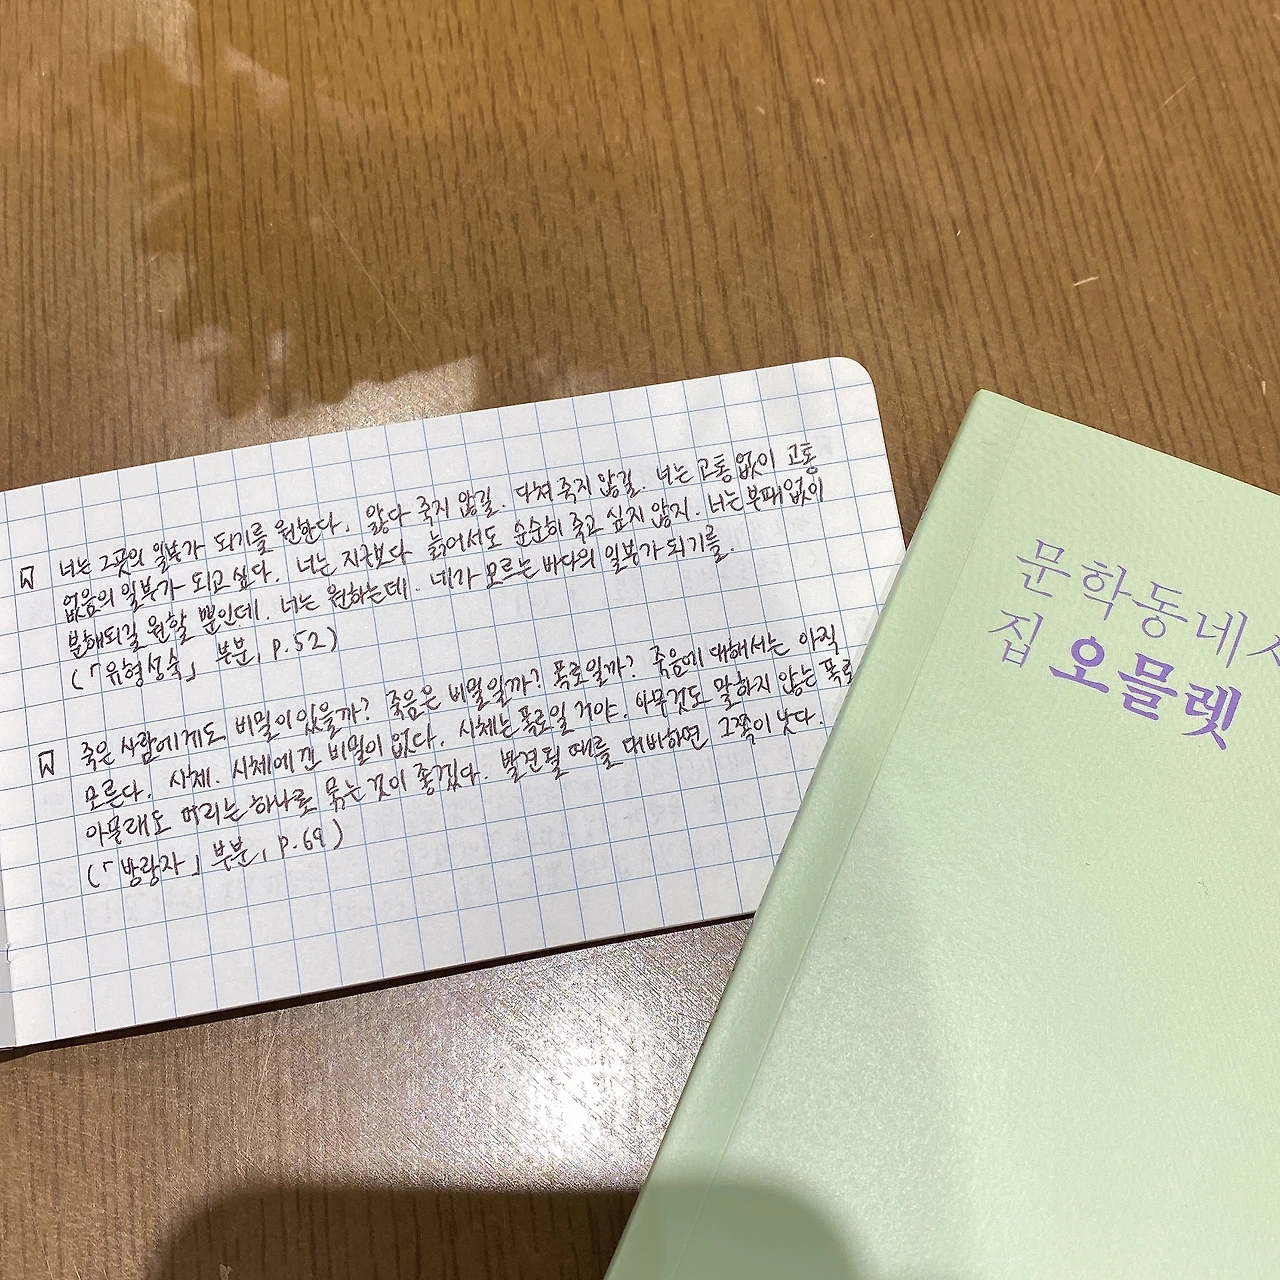 너는 그곳의 일부가 되기를 원한다. 앓다 죽지 않길. 다쳐 죽지 않길. 너는 고통 없이 고통
없음의 일부가 되고 싶다. 너는 지금보다 늙어서도 순순히 죽고 싶지 않지. 너는 부패 없이
분해되길 원할 뿐인데. 너는 원하는데. 네가 모르는 바다의 일부가 되기를.
(「유형성숙」 부분, p.52)
죽은 사람에게도 비밀이 있을까? 죽음은 비밀일까? 폭로일까? 죽음에 대해서는 아직
모른다. 시체. 시체에겐 비밀이 없다. 시체는 폭로일 거야. 아무것도 말하지 않는 폭로
아물래도 머리는 하나로 묶는 것이 좋겠다. 발견될 때를 대비하면 그쪽이 낫다.
(「방랑자」 부분, p.69)
문학동네시
집 오믈렛